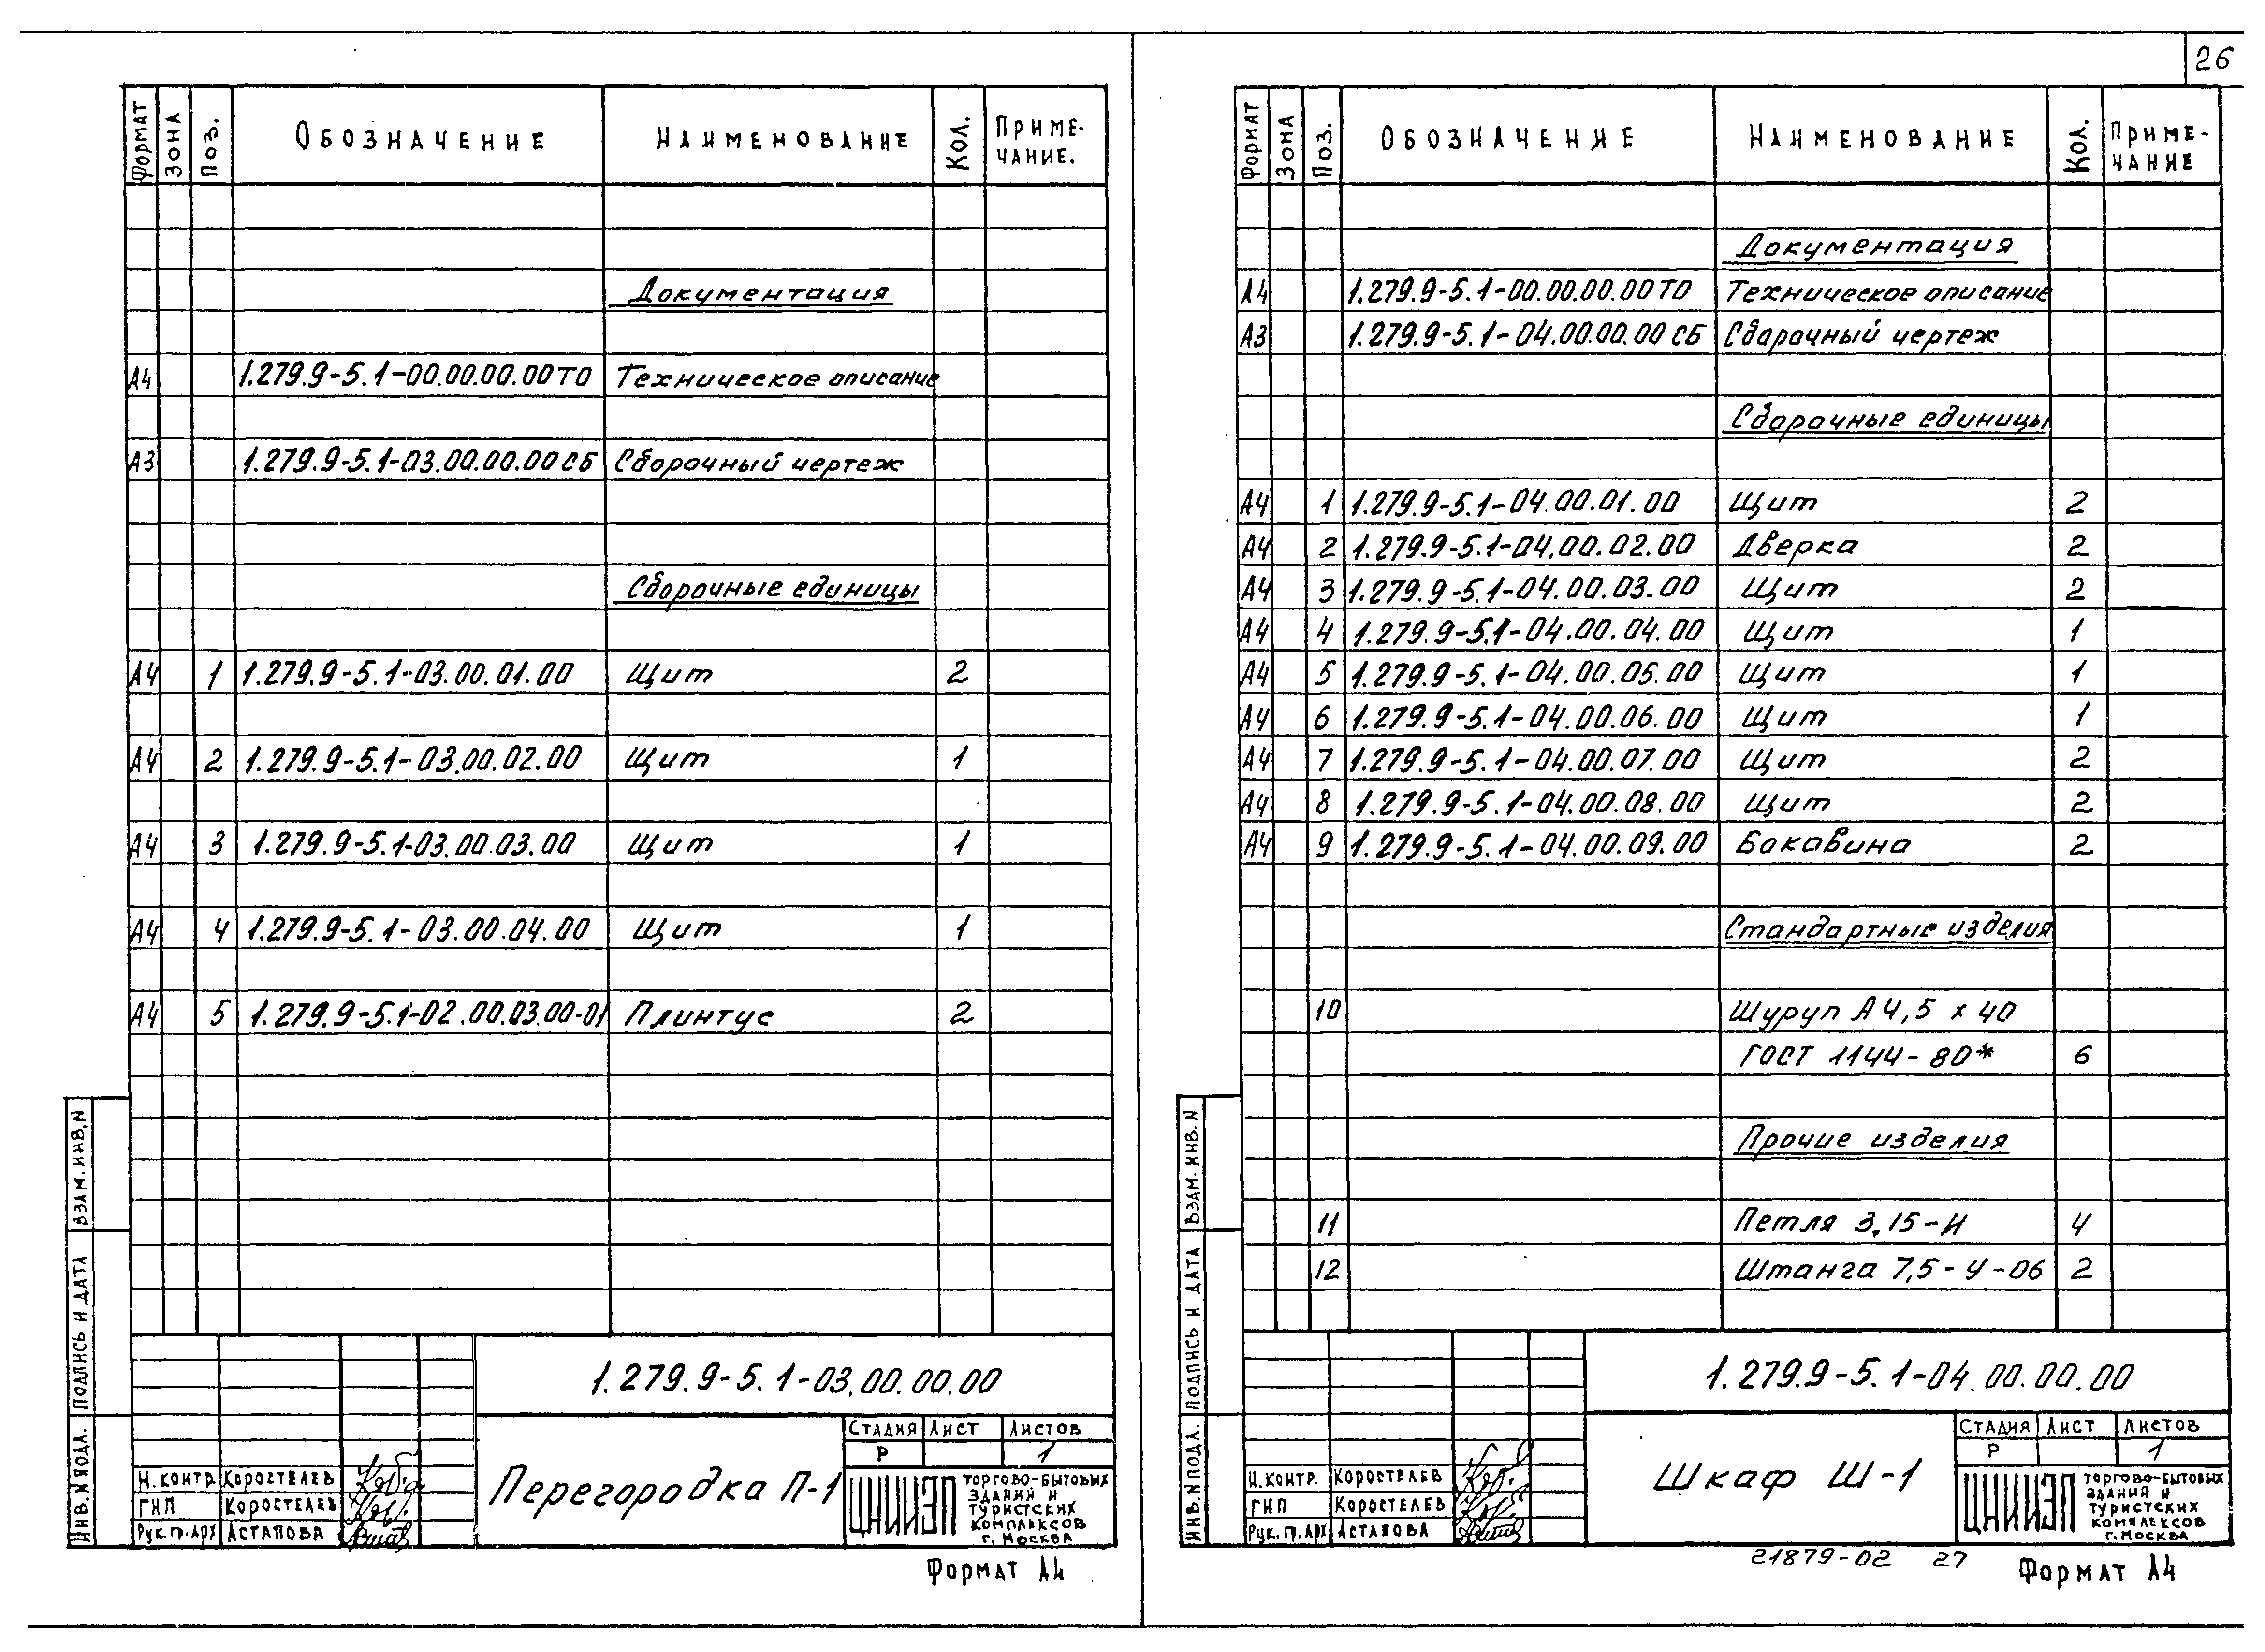 26
Формат Зона Поз. Обозначение Наименование Кол. Приме-
чание.
Документация
А4 1.279.9-5.1-00.00.00.00ТО Техническое описание
А3 1.279.9-5.1-03.00.00.00СБ Сборочный чертеж
Сборочные единицы
А4 1 1.279.9-5.1-03.00.01.00 Щит 2
А4 2 1.279.9-5.1-03.00.02.00 Щит 1
А4 3 1.279.9-5.1-03.00.03.00 Щит 1
А4 4 1.279.9-5.1-03.00.04.00 Щит 1
А4 5 1.279.9-5.1-02.00.03.00-01 Плинтус 2
Взам. инв. N
Подпись и дата
Инв. N подл.
1.279.9-5.1-03.00.00.00
Перегородка П-1
Стадия Лист Листов
Р 1
Н. контр. Коростелев
ГИП Коростелев
Рук. гр. арх Астапова
ЦНИИЭП
торгово-бытовых
зданий и
туристских
комплексов
г. Москва
Формат А4
Формат Зона Поз. Обозначение Наименование Кол. Приме-
чание
Документация
А4 1.279.9-5.1-00.00.00.00ТО Техническое описание
А3 1.279.9-5.1-04.00.00.00СБ Сборочный чертеж
Сборочные единицы
А4 1 1.279.9-5.1-04.00.01.00 Щит 2
А4 2 1.279.9-5.1-04.00.02.00 Дверка 2
А4 3 1.279.9-5.1-04.00.03.00 Щит 2
А4 4 1.279.9-5.1-04.00.04.00 Щит 1
А4 5 1.279.9-5.1-04.00.05.00 Щит 1
А4 6 1.279.9-5.1-04.00.06.00 Щит 1
А4 7 1.279.9-5.1-04.00.07.00 Щит 2
А4 8 1.279.9-5.1-04.00.08.00 Щит 2
А4 9 1.279.9-5.1-04.00.09.00 Боковина 2
Стандартные изделия
10 Шуруп А4,5 х 40
ГОСТ 1144-80* 6
Прочие изделия
11 Петля 3,15-И 4
12 Штанга 7,5-У-06 2
Взам. инв. N
Подпись и дата
Инв. N подл.
1.279.9-5.1-04.00.00.00
Шкаф Ш-1
Стадия Лист Листов
Р 1
Н. контр. Коростелев
ГИП Коростелев
Рук. гр. арх Астапова
ЦНИИЭП
торгово-бытовых
зданий и
туристских
комплексов
г. Москва
21879-02 27
Формат А4